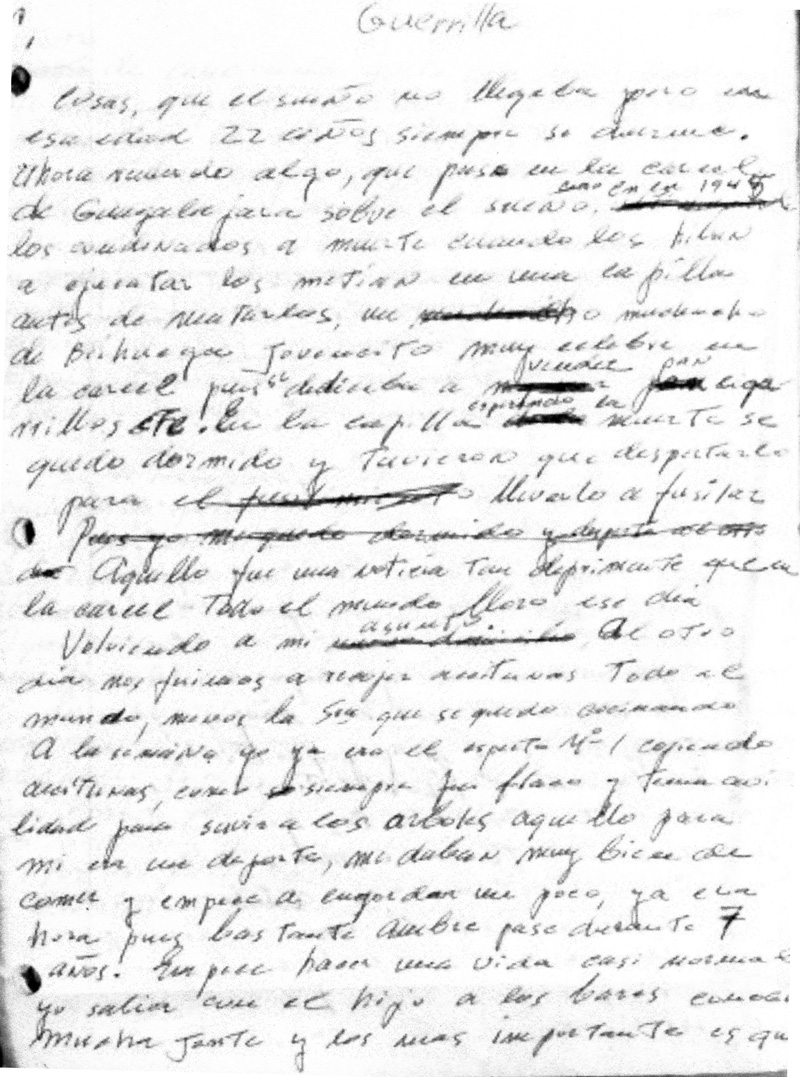 Guerrilla
Cosas, que el sueño no llegaba pero en
esa edad 22 años siempre se duerme.
Ahora recuerdo algo, que paso en la carcel
de Guagalajara sobre el sueño, en 194
los condenados a muerte cuando los hiban
a ejecutar los metian en una capilla
antes de matarlos, un muchacho
de Brihuega Jovencito muy celebre en
la carcel pues se dedicaba a vender pan ciga
rrillos etc. En la capilla esperando la muerte se
quedo dormido y tuvieron que despertarlo
para llevarlo a fusilar
Pues yo me quede dormido y desperte al otro
dia Aquello fue una noticia tan deprimente que en
la carcel todo el mundo lloro ese dia
Volviendo a mi asunto, Al otro
dia nos fuimos a recojer aceitunas todo el
mundo, menos la Sra que se quedo cocinando
A la semana yo ya era el experto Nº 1 cojiendo
aceitunas, como siempre fui flaco y tenia avi
lidad para suvir a los arboles aquello para
mi era un deporte, me daban muy bien de
comer y empece a engordar un poco, ya era
hora pues bastante ambre pase durante 7
años. Empece hacer una vida casi normal
yo salia con el hijo a los bares conoci
mucha Jente y los mas importante es qu